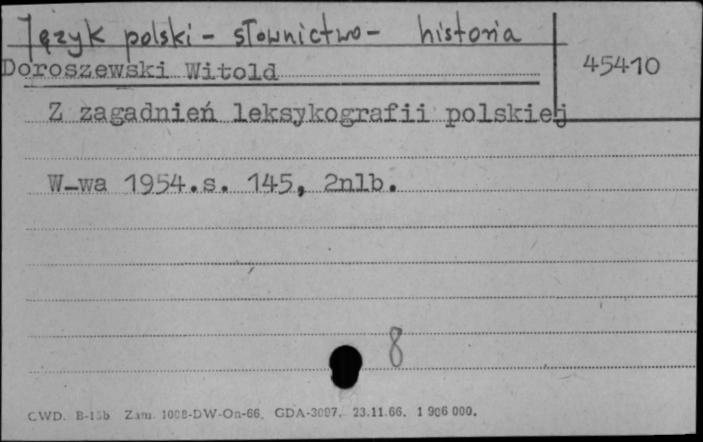 Język polski - słownictwo - historia
Doroszewski Witold
45410
Z zagadnień leksykografii polskiej
W-wa 1954.s. 145, 2nlb.
8
CWD. B-15b Zam. 1008-DW-On-66. GDA-3097. 23.11.66. 1 906 000.